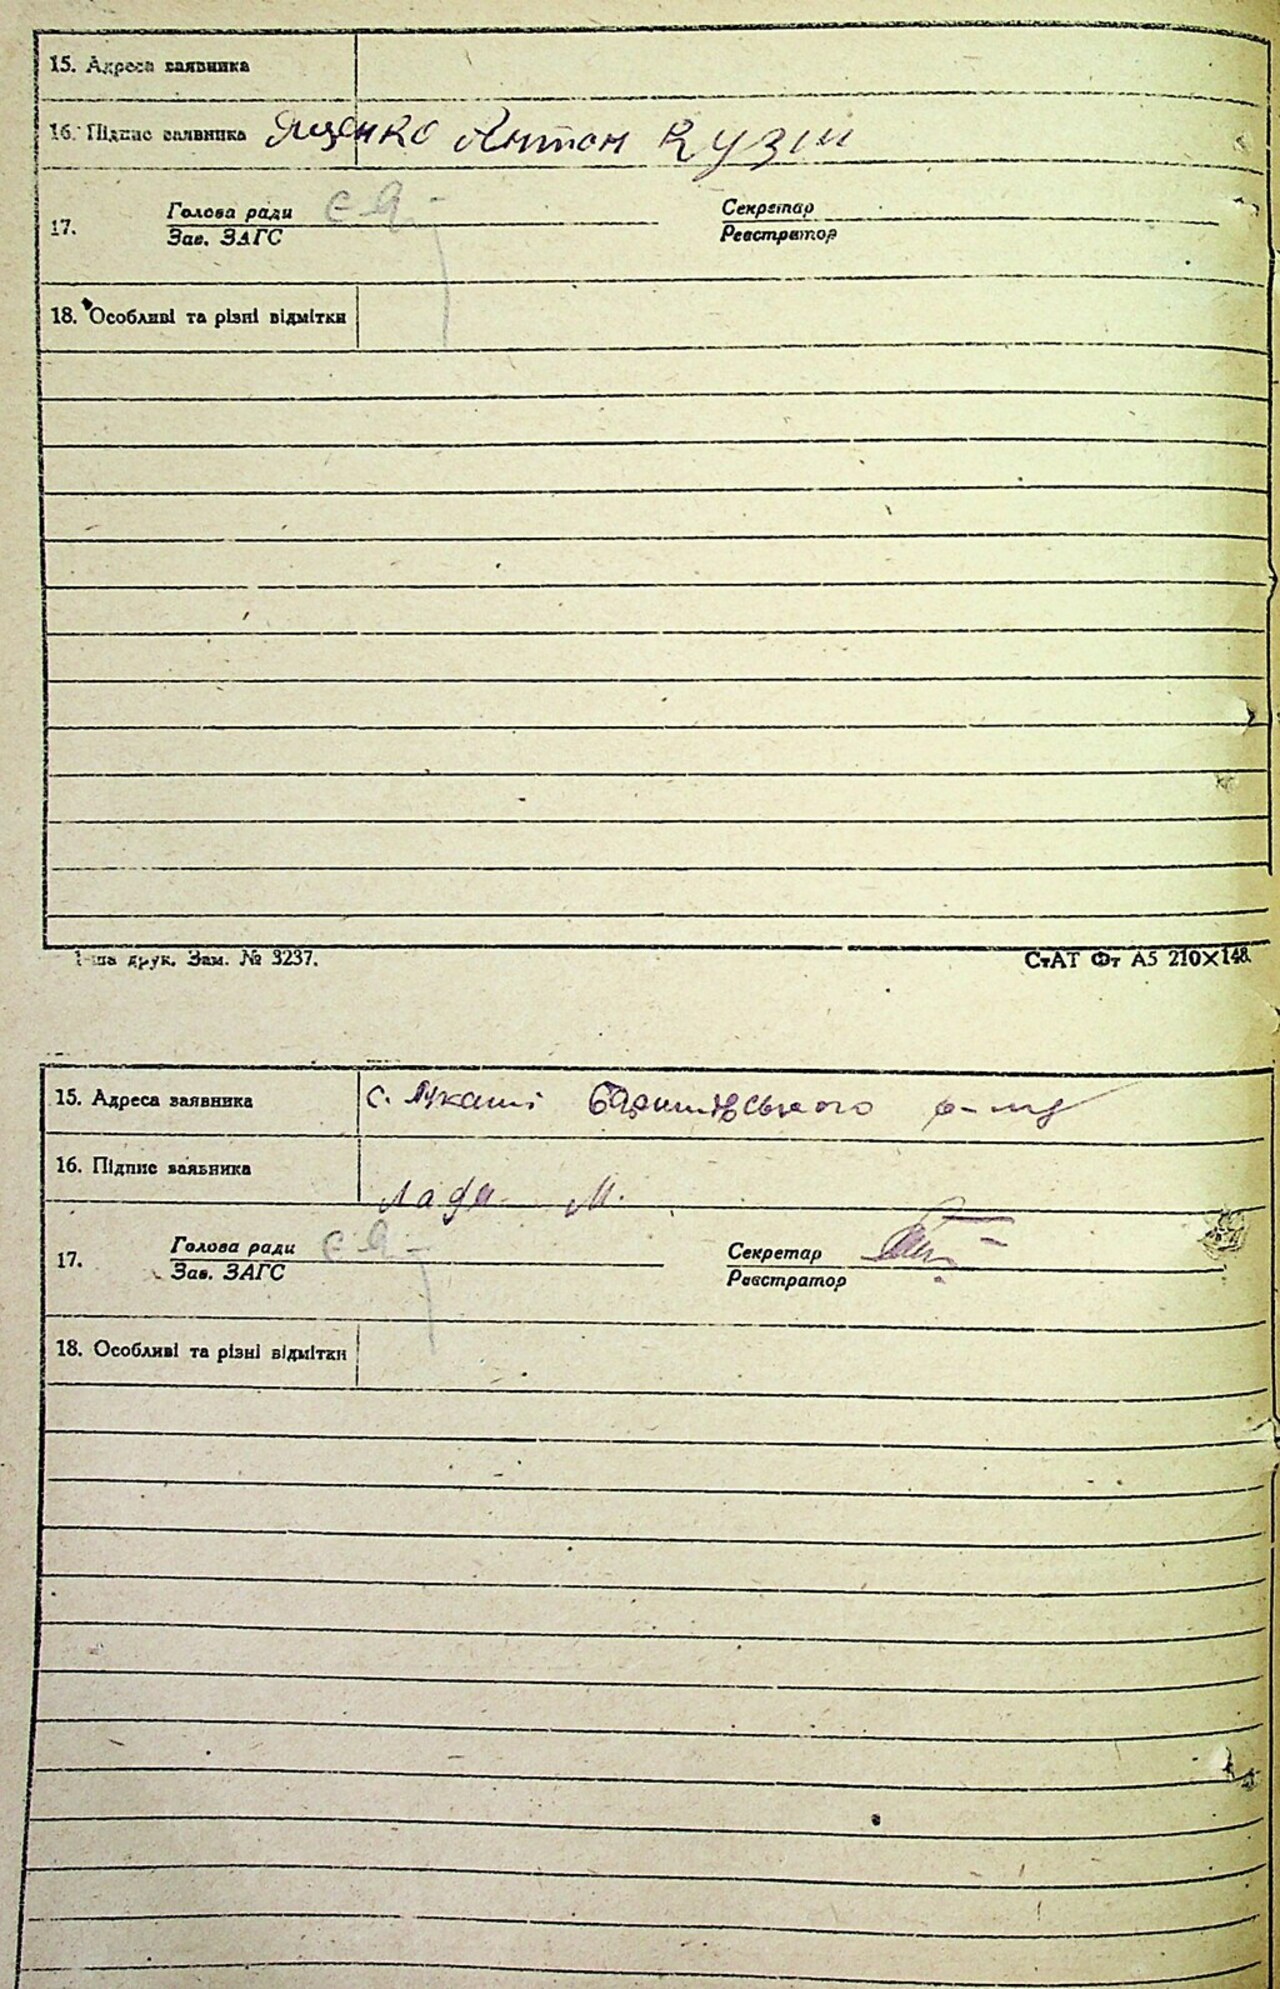 15. Адреса заявника
16. Підпис заявника Ященко Антон Кузм
Голова ради Секретар
17.
Зав. ЗАГС Реєстратор
18. Особливі та різні відмітки
1-ша друк. Зам. № 3237. СтАТ Фт А5 210×148.
15. Адреса заявника с. Лукаші Баришівського р-ну
16. Підпис заявника
М.
Голова ради Секретар
17.
Зав. ЗАГС Реєстратор
18. Особливі та різні відмітки